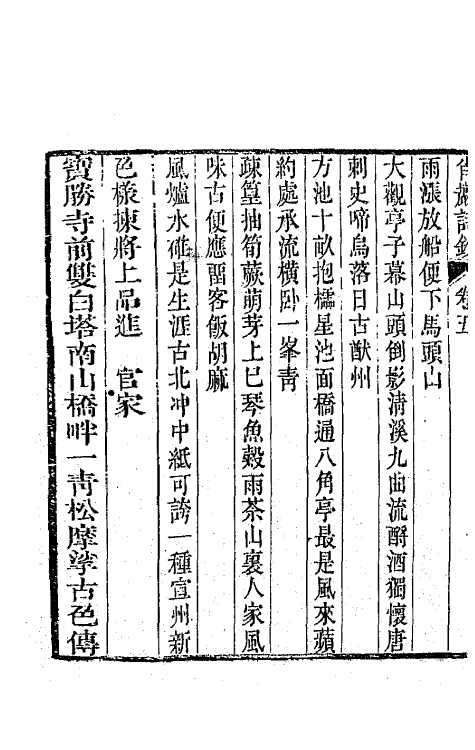 雨漲放船便下馬頭山
大觀亭子幕山頭倒影清溪九曲流酹酒獨懷唐
刺史啼烏落日古猷州
方池十畝抱櫺星池面橋通八角亭最是風來蘋
約處承流橫卧一峯靑
疎篁抽筍蕨萌芽上巳琴魚穀雨茶山裏人家風
味古便應畱客飯胡麻
風爐水碓是生涯古北冲中紙可誇一種宣州新
色樣揀將上品進 官家
寶勝寺前雙白塔南山橋畔一靑松摩挲古色傳